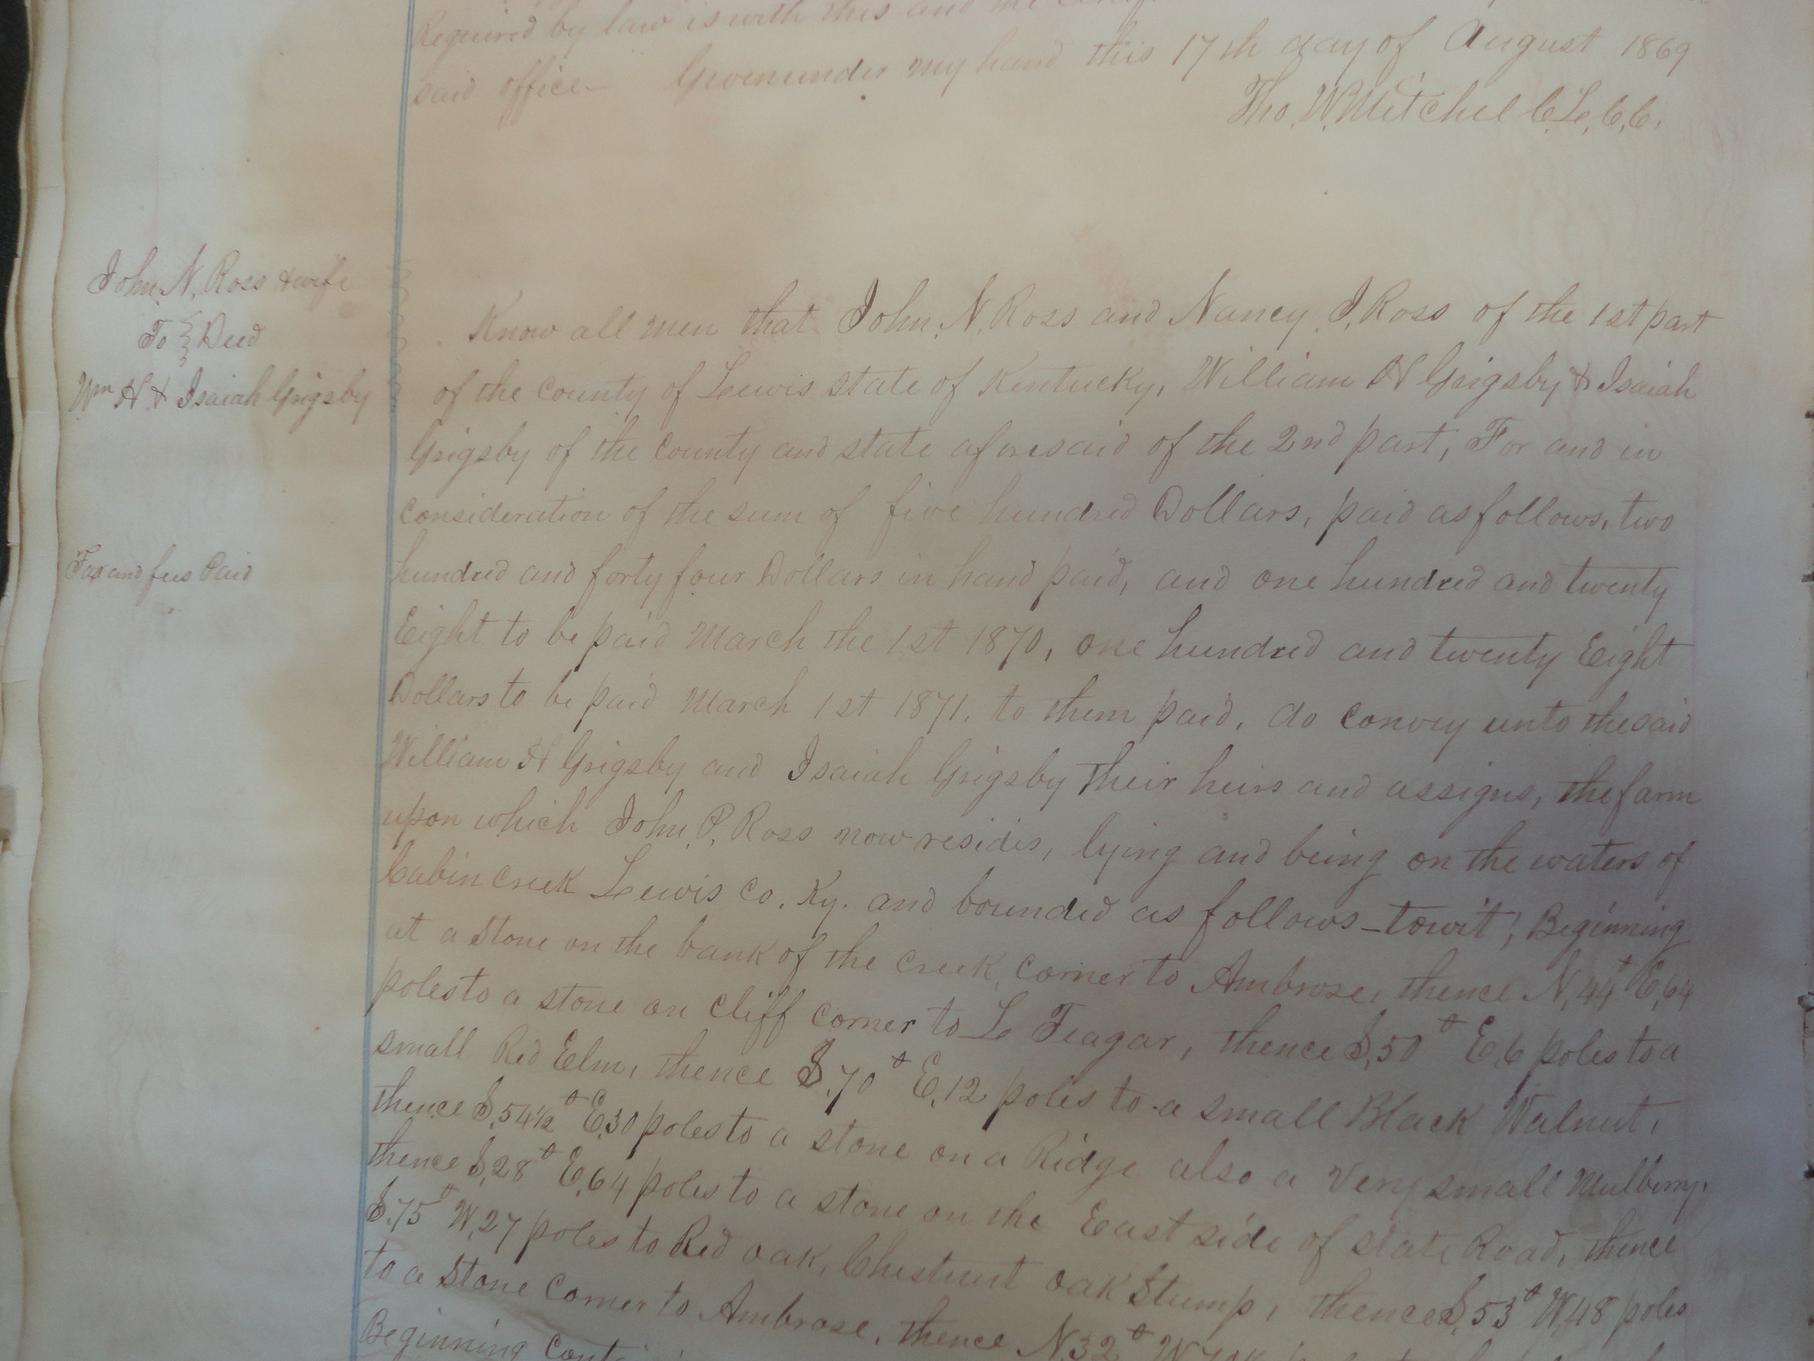 Required by law is with this and the
said office— Given under my hand this 17th day of August 1869
Tho. W. Mitchel C.L.C.C.
John. N. Ross & wife
To } Deed
Wm H & Isaiah Grigsby
Tax and fees Paid
Know all men that John. N. Ross and Nancy J. Ross of the 1st part
of the county of Lewis state of Kentucky, William H Grigsby & Isaiah
Grigsby of the county and state aforesaid of the 2nd part, For and in
consideration of the sum of five hundred Dollars, paid as follows, two
hundred and forty four Dollars in hand paid, and one hundred and twenty
Eight to be paid March the 1st 1870, one hundred and twenty Eight
Dollars to be paid March 1st 1871. to them paid, do convey unto the said
William H Grigsby and Isaiah Grigsby their heirs and assigns, the farm
upon which John. P. Ross now resides, lying and being on the waters of
Cabin creek Lewis co. Ky. and bounded as follows—towit; Beginning
at a stone on the bank of the creek, corner to Ambrose, thence N. 44° E. 64
poles to a stone on cliff corner to L Feagar, thence S. 50° E. 6 poles to a
small Red Elm, thence S. 70° E. 12 poles to a small Black Walnut,
thence S. 54½° E. 30 poles to a stone on a Ridge also a very small Mulberry,
thence S. 28° E. 64 poles to a stone on the East side of state Road, thence
S. 75° W. 27 poles to Red oak, Chestnut oak Stump, thence S. 53° W. 48 poles
to a stone corner to Ambrose, thence N. 32° W.
Beginning